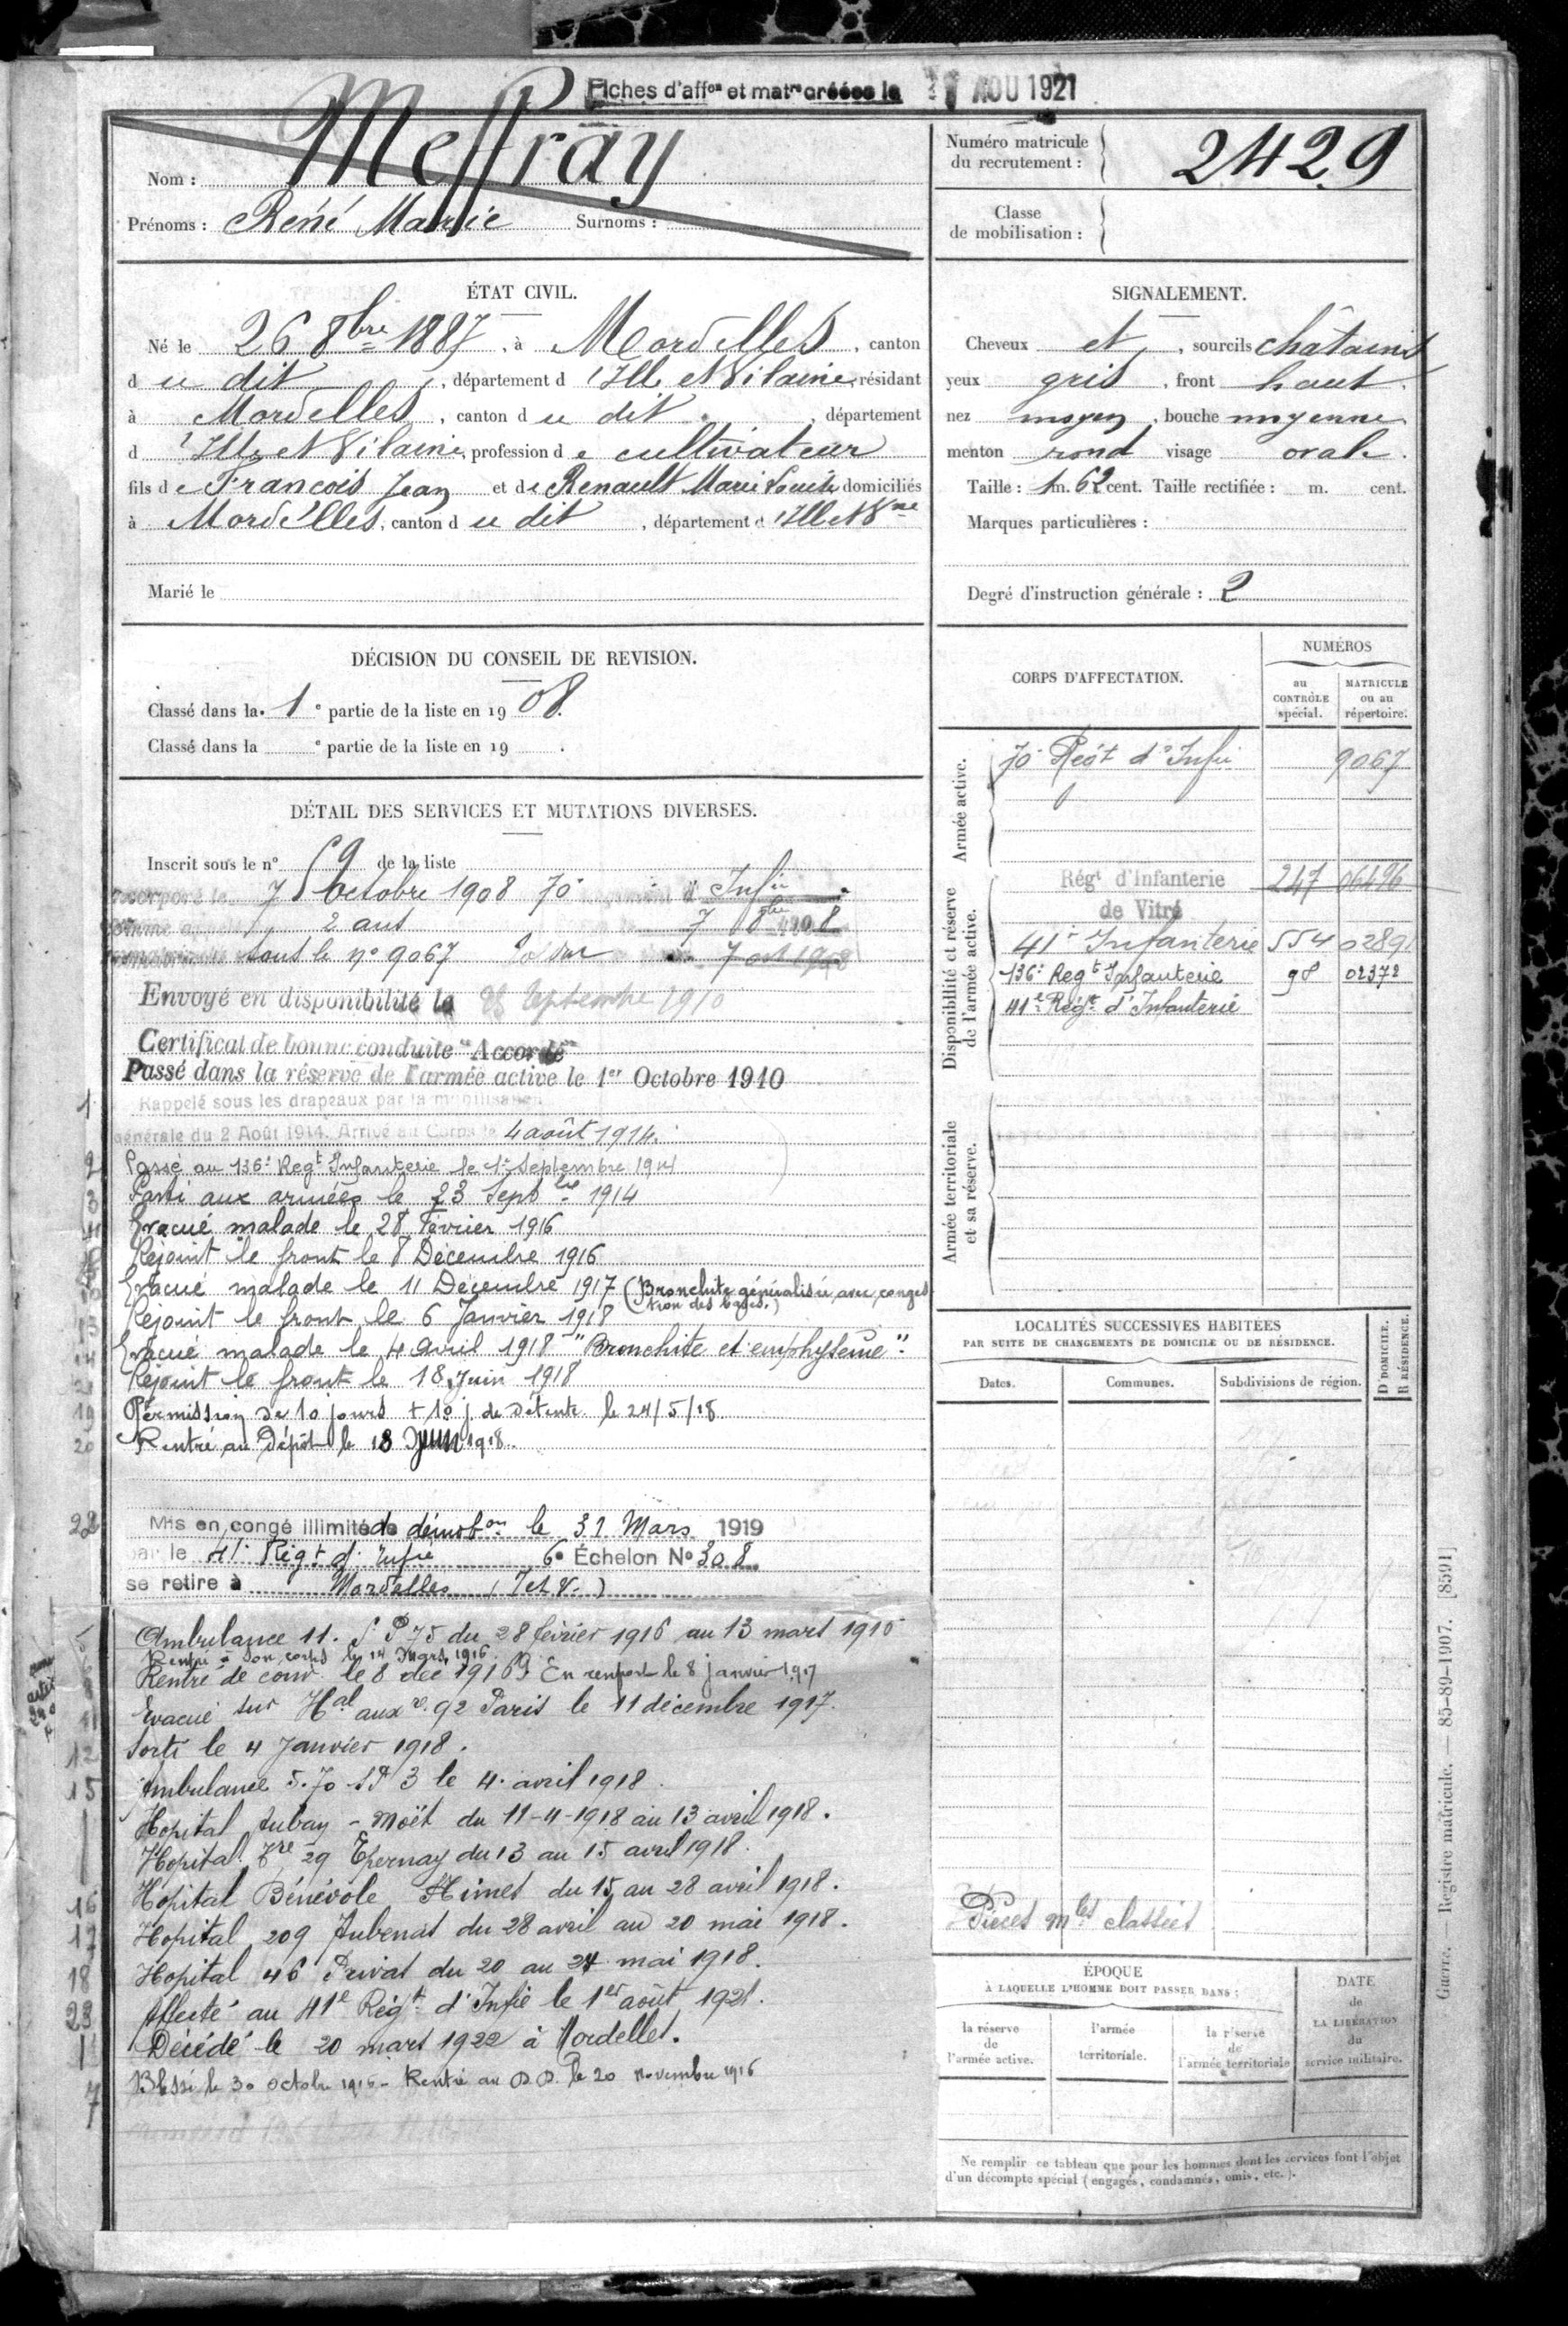 Fiches d'affon et matre créées le AOU 1921
Nom : Meffray
Prénoms : René Marie Surnoms :
Numéro matricule
du recrutement :
2429
Classe
de mobilisation :
ÉTAT CIVIL.
Né le 26 8bre 1887, à Mordelles, canton
du dit, département d'Ille et Vilaine, résidant
à Mordelles, canton du dit, département
d'Ille et Vilaine, profession de cultivateur
fils de François Jean et de Renault Marie Louise domiciliés
à Mordelles, canton du dit, département d'Ille et Vne
Marié le
SIGNALEMENT.
Cheveux et, sourcils châtains
yeux gris, front haut.
nez moyen, bouche moyenne
menton rond visage ovale.
Taille : 1 m. 62 cent. Taille rectifiée : m. cent.
Marques particulières :
Degré d'instruction générale : 2
DÉCISION DU CONSEIL DE REVISION.
Classé dans la 1e partie de la liste en 1908.
Classé dans la e partie de la liste en 19 .
DÉTAIL DES SERVICES ET MUTATIONS DIVERSES.
Inscrit sous le n° 59 de la liste
Incorporé le 7 Octobre 1908 70e Infie
2 ans 7 8bre 1908
sous le n° 9067 7 oct 1908
Envoyé en disponibilité le 25 Septembre 1910
Certificat de bonne conduite "Accordé"
Passé dans la réserve de l'armée active le 1er Octobre 1910
1 Rappelé sous les drapeaux par la mobilisation
générale du 2 Août 1914. Arrivé au Corps le 4 août 1914.
2 Passé au 136e Regt Infanterie le 1er Septembre 1914
3 Parti aux armées le 23 Septbre 1914
4 Evacué malade le 28 Février 1916
Rejoint le front le 8 Décembre 1916
Evacué malade le 11 Décembre 1917 (Bronchite généralisée avec conges
tion des bases.)
13 Rejoint le front le 6 Janvier 1918
14 Evacué malade le 4 Avril 1918 "Bronchite et emphysème".
Rejoint le front le 18 Juin 1918
19 Permission de 10 jours + 10 j. de détente le 24/5/18
20 Rentré au Dépôt le 18 JUIN 1918.
22 Mis en congé illimité de démobon le 31 Mars 1919
par le 41e Régt d'Infie 6e Échelon N° 308
se retire à Mordelles (I et V.)
5 Ambulance 11. S.P 75 du 28 février 1916 au 13 mars 1916
6 Rentré à son corps le 14 Mars 1916.
8 Rentré de conv. le 8 déc 1916 9 En renfort le 8 janvier 1917
11 Evacué sur Hal auxre 92 Paris le 11 décembre 1917.
12 Sorti le 4 Janvier 1918.
15 Ambulance 5.70 SP 3 le 4 avril 1918.
Hopital Aubay - Moët du 11-4-1918 au 13 avril 1918.
Hopital Tre 29 Epernay du 13 au 15 avril 1918.
16 Hopital Bénévole Nimes du 15 au 28 avril 1918.
17 Hopital 209 Aubenas du 28 avril au 20 mai 1918.
18 Hopital 46 Privas du 20 au 24 mai 1918.
23 Affecté au 41e Régt d'Infie le 1er août 1921.
Décédé le 20 mars 1922 à Mordelles.
7 Blessé le 30 octobre 1916 - Rentré au D.D. le 20 novembre 1916
CORPS D'AFFECTATION.
NUMÉROS
au
CONTRÔLE
spécial.
MATRICULE
ou au
répertoire.
Armée active.
70e Regt d'Infie 9067
Disponibilité et réserve
de l'armée active.
Régt d'Infanterie 247 06496
de Vitré
41e Infanterie 554 02891
136e Regt Infanterie 98 02372
41e Régt d'Infanterie
Armée territoriale
et sa réserve.
LOCALITÉS SUCCESSIVES HABITÉES
PAR SUITE DE CHANGEMENTS DE DOMICILE OU DE RÉSIDENCE.
D DOMICILE.
R RÉSIDENCE.
Dates. Communes. Subdivisions de région.
Pièces mles classées
ÉPOQUE
À LAQUELLE L'HOMME DOIT PASSER DANS :
la réserve
de
l'armée active.
l'armée
territoriale.
la réserve
de
l'armée territoriale
DATE
de
LA LIBÉRATION
du
service militaire.
Ne remplir ce tableau que pour les hommes dont les services font l'objet
d'un décompte spécial (engagés, condamnés, omis, etc.).
Guerre. — Registre matricule. — 85-89-1907. [8591]